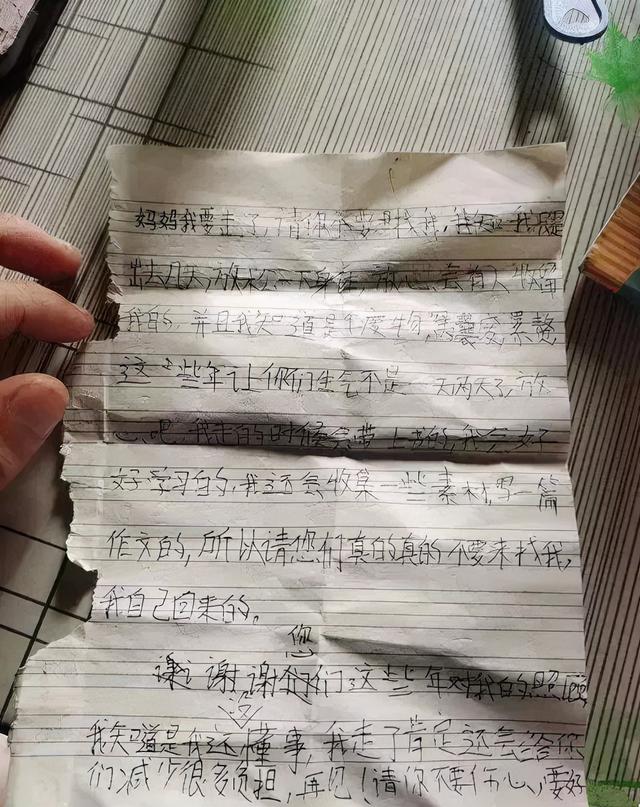 妈妈我要走了,请你不要来找我,我知 我只是
出去几天,放松一下身 ,放心,会有人收留
我的,并且我知道是 废物 累赘
这些年让你们生气不是一天两天了,放
心吧,我走的时候会带上书的,我会好
好学习的,我还会收集一些素材,写一篇
作文的,所以请您们真的真的不要来找我,
我自己回来的。
您
谢谢谢 们这些年对我的照顾
没
我知道是我还懂事,我走了肯定还会给你
们减少很多负担,再见!请你不要伤心,要好